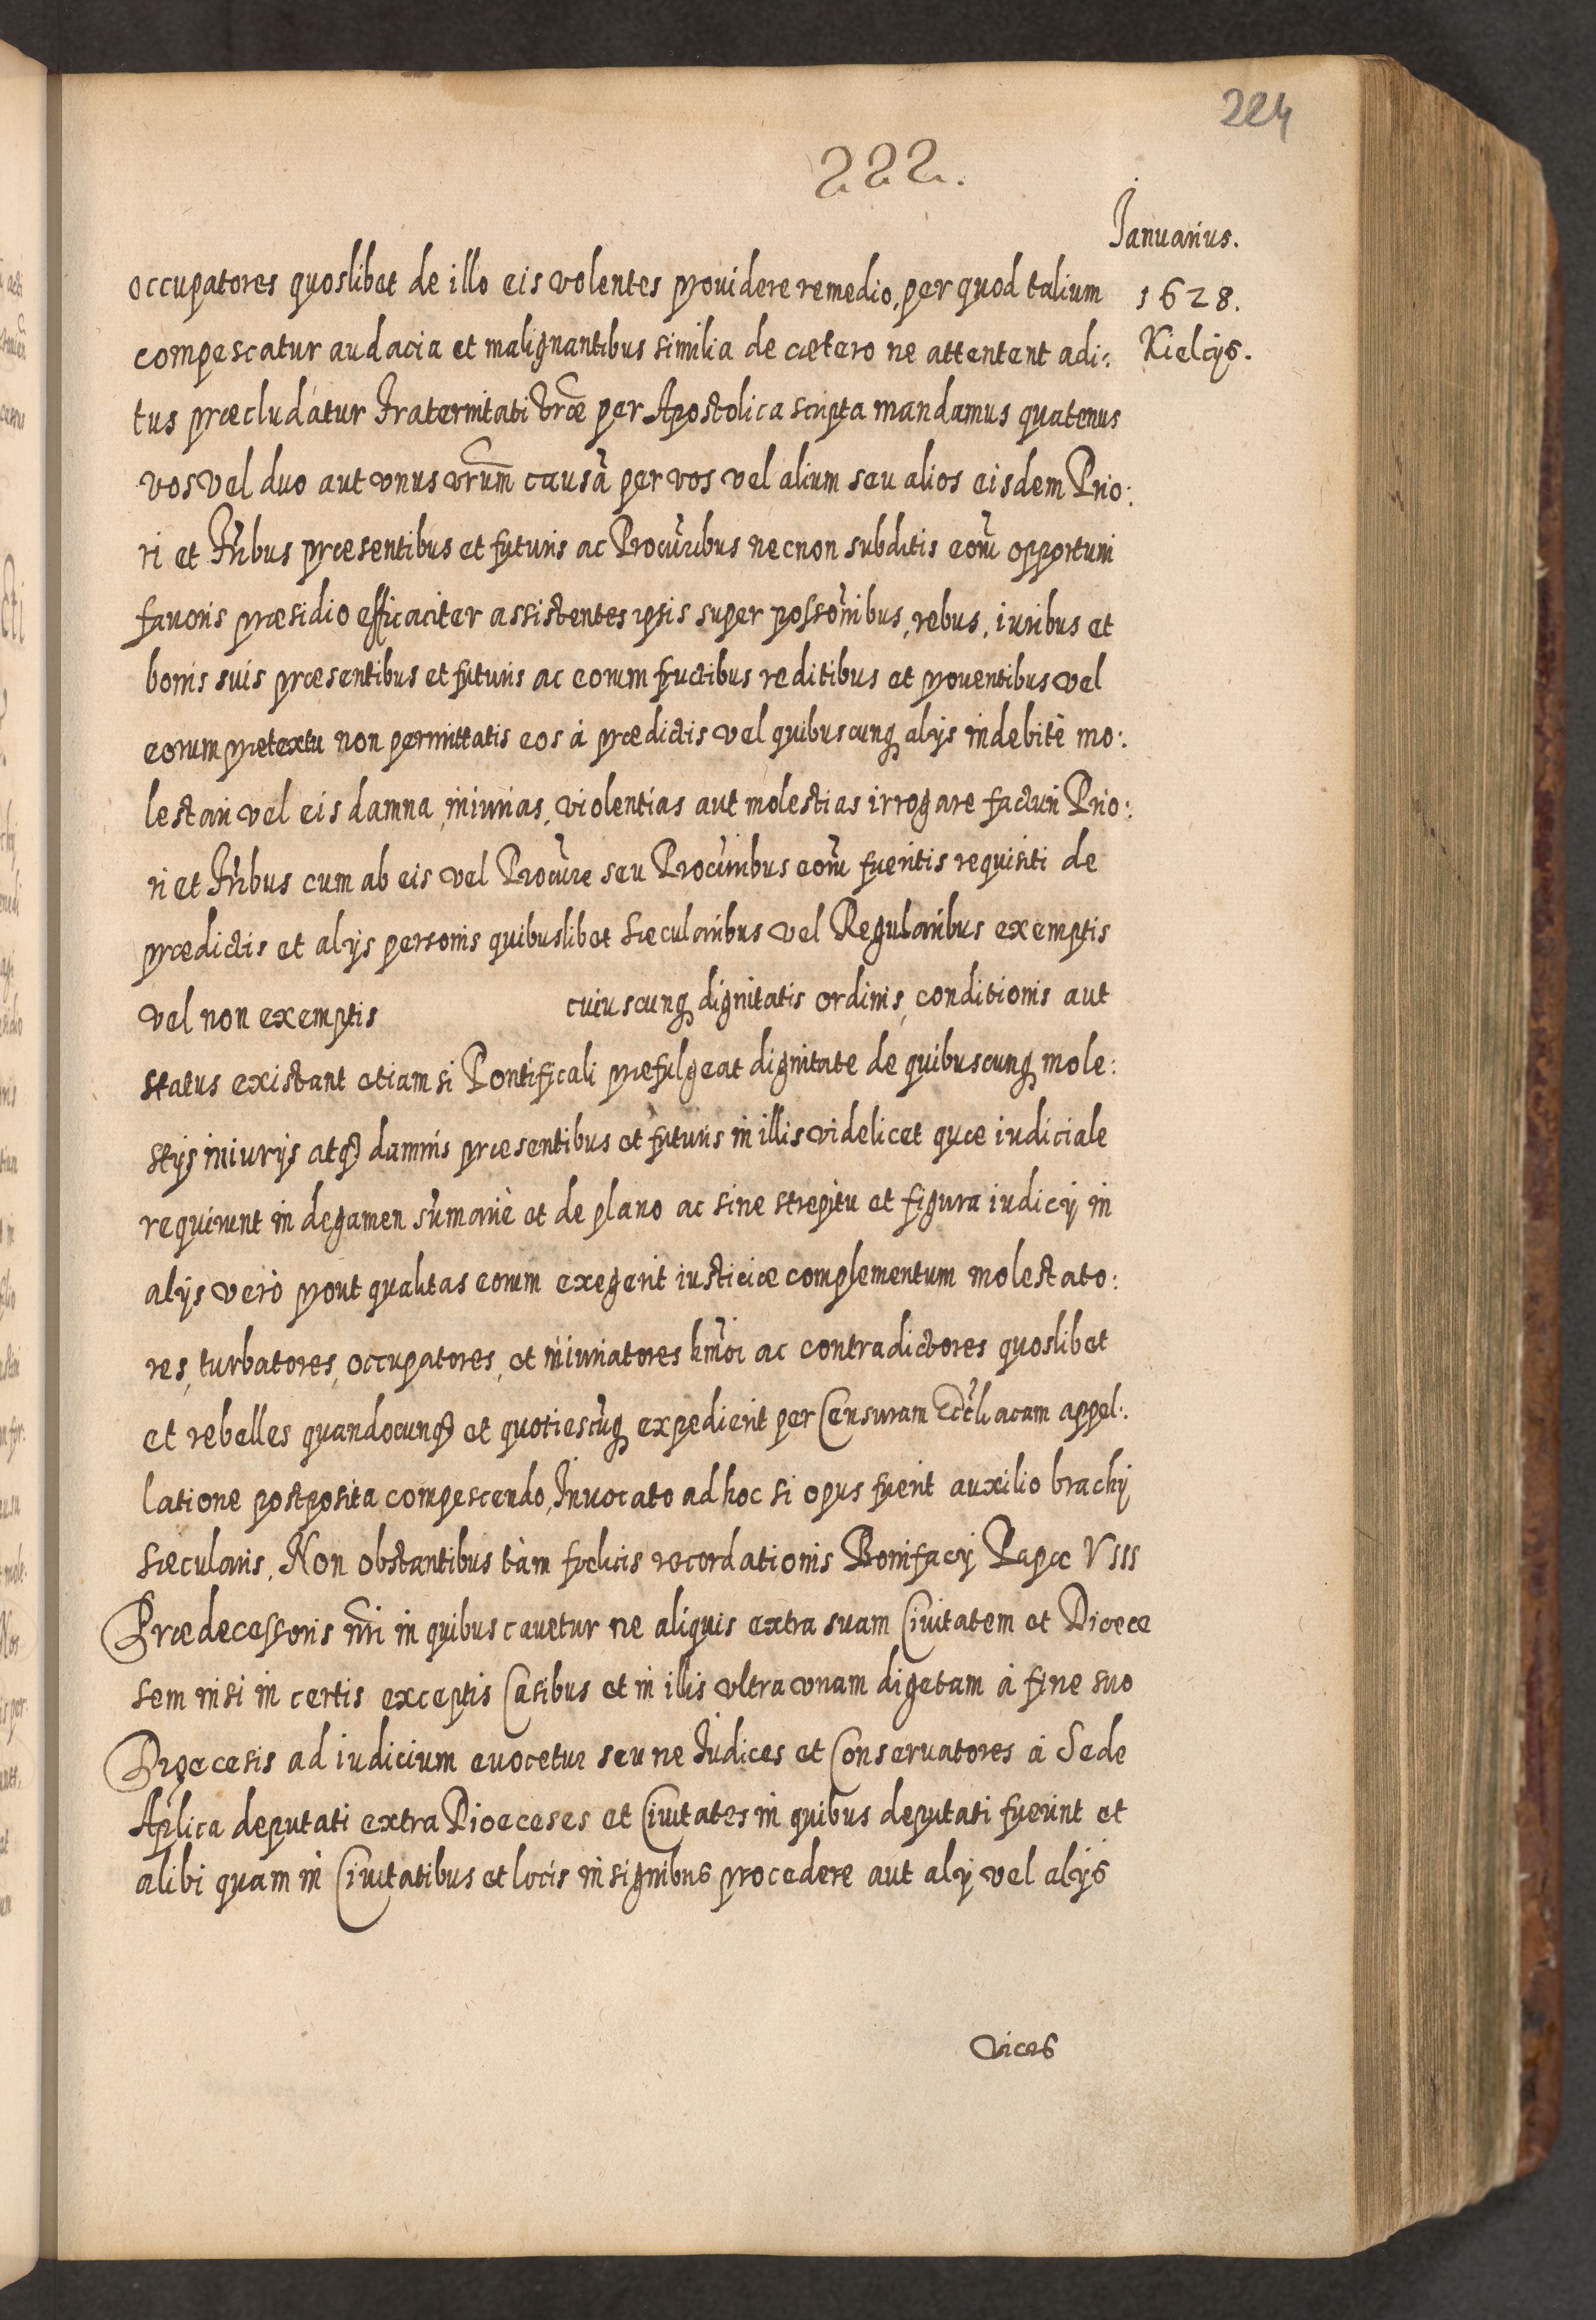 224
222.
Januarius.
1628.
Kielcÿs.
occupatores quoslibet de illo eis volentes prouidere remedio, per quod talium
compescatur audacia et malignantibus similia de cætero ne attentent adi:
tus præcludatur Fraternitati vr̃æ per Apostolica scripta mandamus quatenus
vos vel duo aut vnus vrũm causã per vos vel alium seu alios eisdem Prio:
ri et Fr̃ibus præsentibus et futuris ac Procur̃ibus necnon subditis eoru͂ opportuni
fauoris præsidio efficaciter assistentes ipsis super possõnibus, rebus, iuribus et
bonis suis præsentibus et futuris ac eorum fructibus reditibus et prouentibus vel
eorum prætextu non permittatis eos à prædictis vel quibuscunq alÿs indebitè mo:
lestari vel eis damna, iniurias, violentias aut molestias irrogare facturi Prio:
ri et Fr̃ibus cum ab eis vel Procur̃e seu Procur̃ibus eorũ fueritis requisiti de
prædictis et alÿs personis quibuslibet Sæcularibus vel Regularibus exemptis
vel non exemptis cuiuscunq dignitatis ordinis, conditionis aut
status existant etiam si Pontificali præfulgeat dignitate de quibuscunq mole:
stÿs iniurÿs atq damnis præsentibus et futuris in illis videlicet quæ iudiciale
requirunt indegamen sũmariè et de plano ac sine strepitu et figura iudicÿ in
alÿs verò prout qualitas eorum exegerit iusticiæ complementum molestato:
res, turbatores, occupatores, et iniuriatores hmõi ac contradictores quoslibet
et rebelles quandocunq et quotiescũq expedierit per Censuram Eccl̃iacam appel:
latione postposita compescendo, Inuocato ad hoc si opus fuerit auxilio brachÿ
Sæcularis, Non obstantibus tàm fælicis recordationis Bonifacÿ Papæ VIII
Prædecessoris nr̃i in quibus cauetur ne aliquis extra suam Ciuitatem et Dioece
sem nisi in certis exceptis Casibus et in illis vltra vnam digetam à fine suo
Dioecesis ad iudicium euocetur seu ne Iudices et Conseruatores à Sede
Ap̃lica deputati extra Dioeceses et Ciuitates in quibus deputati fuerint et
alibi quam in Ciuitatibus et locis insignibus procedere aut alÿ vel alÿs
vices